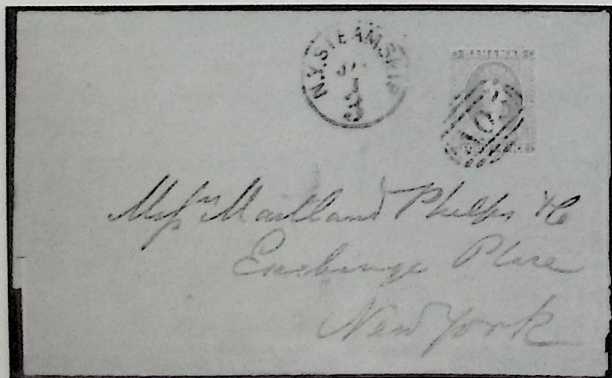 N.Y. STEAMSHIP
JA
1
3
A03
Messrs Maitland Phelps & Co
Exchange Place
New York